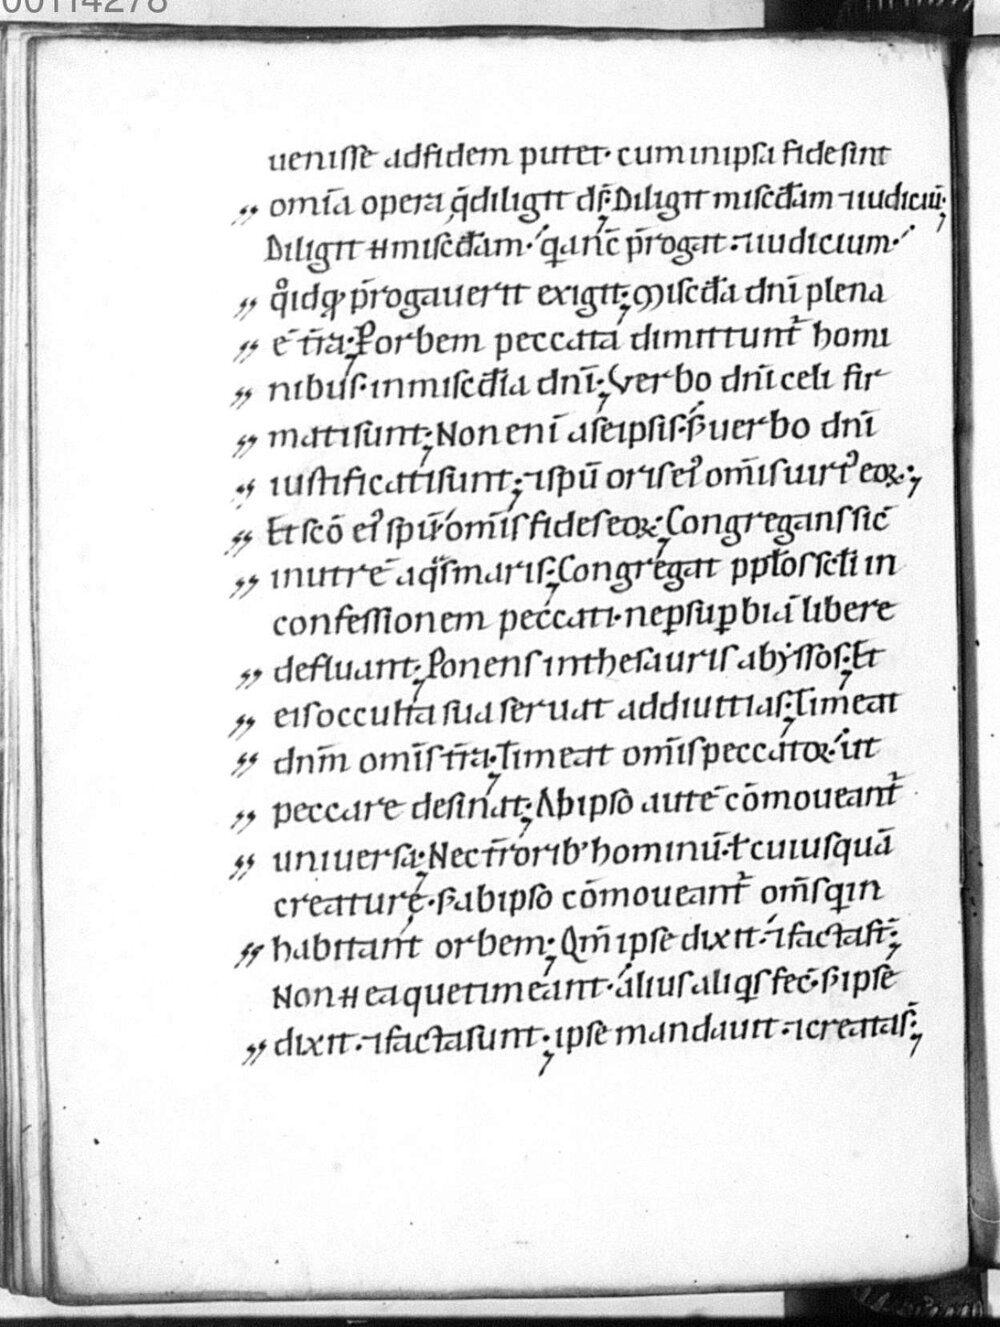 00114278
ueniſſe adfidem putet· cuminipſa fideſint
omīa opera q̄diligit dſ̄; Diligit miſcđam ⁊iudiciū;
Diligit H miſcđam· q̄anc̄ p̄rogat· ⁊iudicium·
qͦidqͥ p̄rogauerit exigit; Miſcđa dnī plena
ē tr̄a; Porbem peccata dimittunt᷑ homi
nibuſ· inmiſcđia dnī; Verbo dnī celi fir
matiſunt; Non eni᷑ aſeipſiſ· ſ; uerbo dnī
iuſtificatiſunt; ⁊ſpū oriſ ei᷒ om̄iſ uirt᷒ eoꝝ;
Et ſcō ei᷒ ſpū· om̄iſ fideſ eoꝝ; Congreganſ ſic̄
inutrē aqͣſ mariſ; Congregat pplōſ ſcl̄i in
confeſſionem peccati· neꝑſuꝑbiā libere
defluant; Ponenſ intheſauriſ abẏſſoſ; Et
eiſ occulta ſua ſeruat addiuitiaſ; Timeat
dnm̄ om̄iſ tr̄a; Timeat om̄iſ peccatoꝝ· ut
peccare deſinat; Abipſo autē cōmoueant᷑
uniuerſa; Nec tr̄orib᷒ hominū· ł cuiuſquā
creaturę· ſ; abipſo cōmoueant᷑ om̄ſ qin
habitant orbem; Qm̄ ipſe dixit· ⁊factaſt̄;
Non H ea quetimeant· aliuſ aliqͥſ fec̄· ſ; ipſe
dixit· ⁊factaſunt; ipſe mandauit· ⁊creataſ̄;